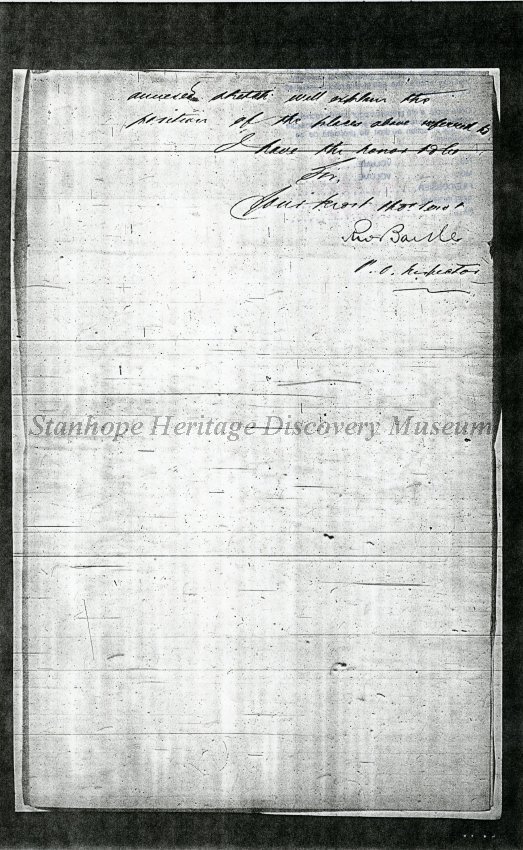 annexed sketch will explain the
position of the places above referred to
I have the honor to be
Sir,
Your most obedient
P. O. Inspector
Stanhope Heritage Discovery Museum